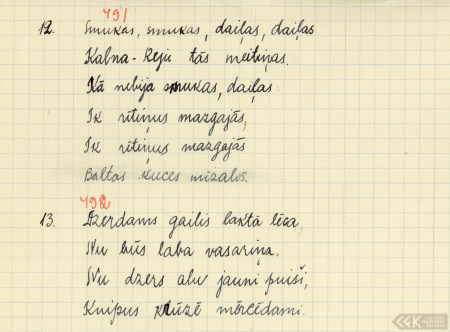 491
12. Smukas, smukas, daiļas, daiļas
Kalna-Reju tās meitiņas.
Kā nebija smukas, daiļas
Ik rītiņus mazgajās,
Ik rītiņus mazgajās
Baltas kuces mīzalos.
492
13. Dzerdams gailis laktā lēca,
Nu būs laba vasariņa.
Nu dzers alu jauni puiši,
Knipus krūzē mērcēdami.